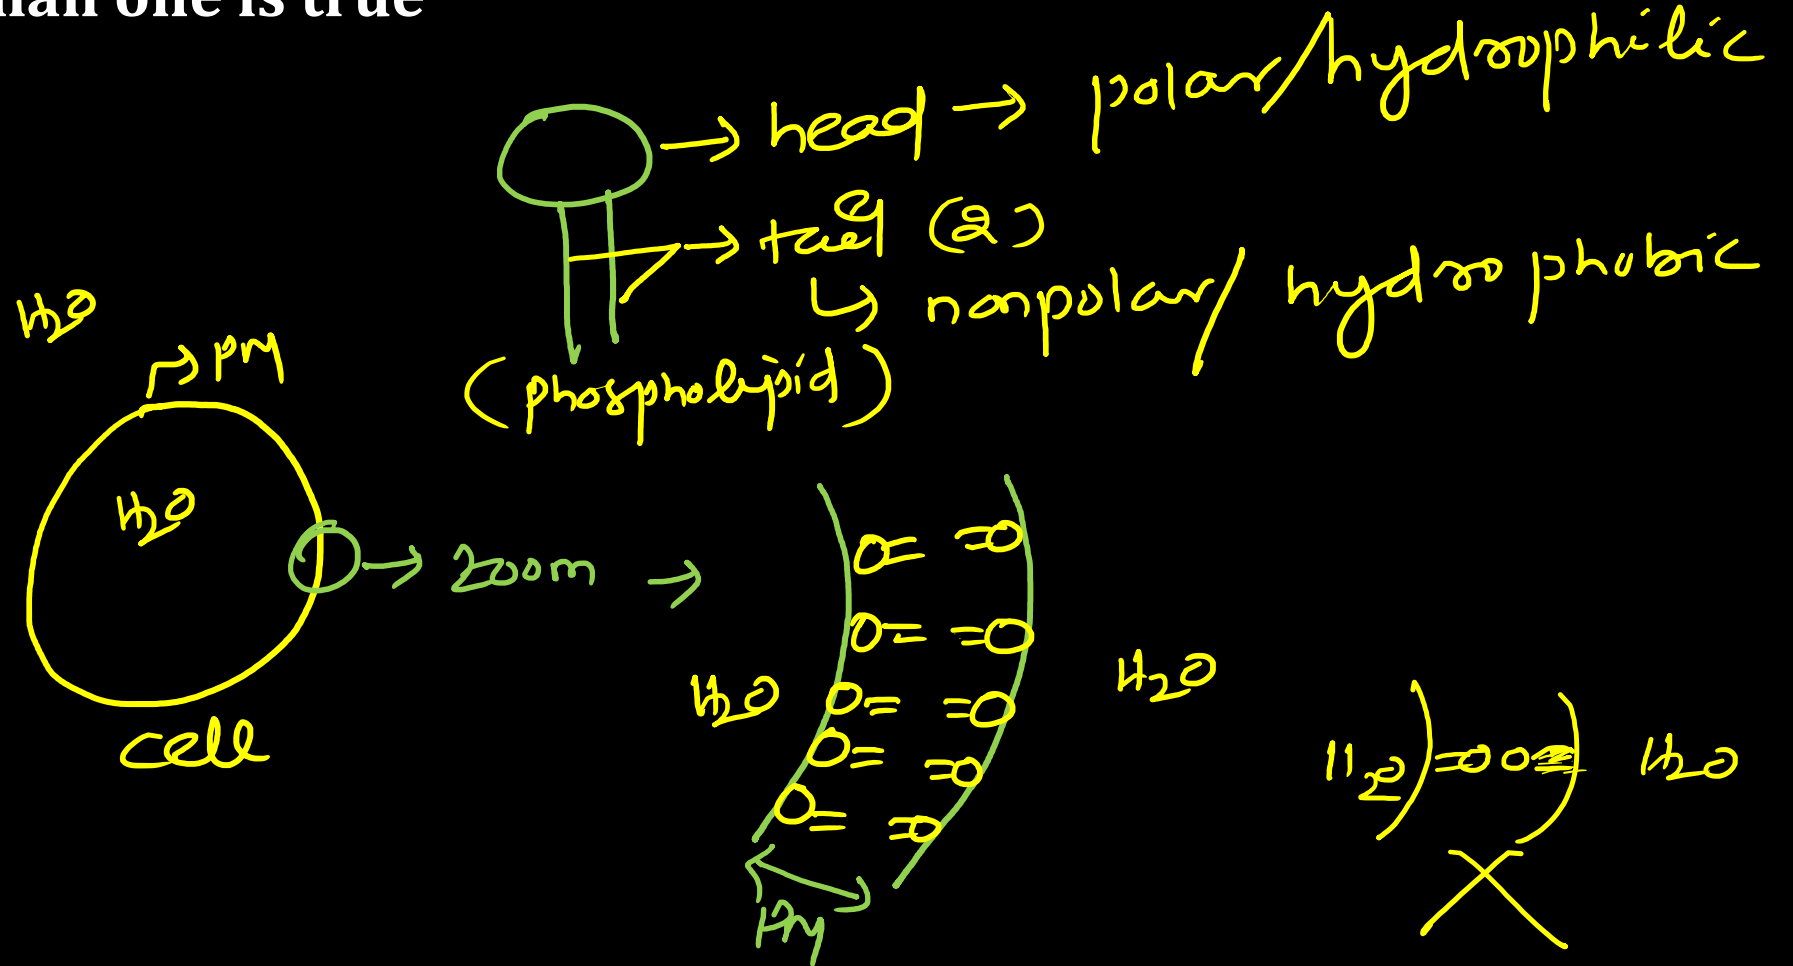 han one is true
head → polar/hydrophilic
tail (2)
↳ nonpolar/hydrophobic
(phospholipid)
H₂O
→ PM
H₂O
cell
→ zoom →
H₂O
H₂O
PM
H₂O
H₂O